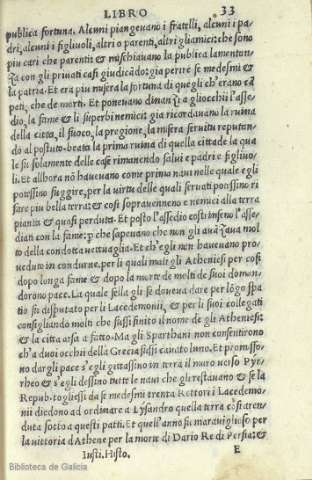 LIBRO 33
publica fortuna. Alcuni piangevano i fratelli, alcuni i pa-
dri, alcuni i figliuoli, altri o parenti, altri gli amici: che sono
piu cari che parenti & mischiavano la publica lamentan-
za con gli privati casi giudicãdo: gia perire se medesmi &
la patria. Et era piu misera la fortuna di quegli ch'erano cã
pati, che de morti. Et ponevano dinanzi a gli occhii l'asse-
dio, la fame & li superbi nemici: gia ricordavano la ruina
della citta, il fuoco, la pregione, la misera servitu reputan-
do al postuto beata la prima ruina di quella citta de la qua
le fu solamente delle case rimanendo salui e padri e figliuo-
li. Et allhora nõ havevano come prima navi nelle quale egli
potessino fuggire, per la virtu delle quali servati potessino ri
fare piu bella terra: & cosi sopravenneno e nemici alla terra
pianta & quasi perduta. Et posto l'assedio costrinseno l'asse-
diati con la fame: p che sapevano che non gli avãzava mol
to della condotta vettuaglia. Et ch'egli non havevano pro-
veduto in condurne. per li quali mali gli Atheniesi per cosi
dopo longa fame & dopo la morte de molti de suoi doman-
dorono pace. La quale se lla gli se doveva dare per lõgo spa
tio fu disputato per li Lacedemonii, & per li suoi collegati
consigliando molti che fussi finito il nome de gli Atheniesi:
& la citta arsa a fatto. Ma gli Sparthani non consentirono
ch'a duoi occhii della Grecia fussi cavato l'uno. Et promisso-
no dargli pace s'egli gittassino in terra il muro verso Pyr-
rheo & s'egli dessino tutte le navi che gli restavano & se la
Repub. togliessi da se medesmi trenta Rettori i Lacedemo-
nii diedono ad ordinare a Lysandro quella terra cosi aren-
duta sotto a questi patti. Et quell'anno fu maraviglioso per
la vittoria d'Athene per la morte di Dario Re di Persia: &
Iusti. Histo. E
Biblioteca de Galicia